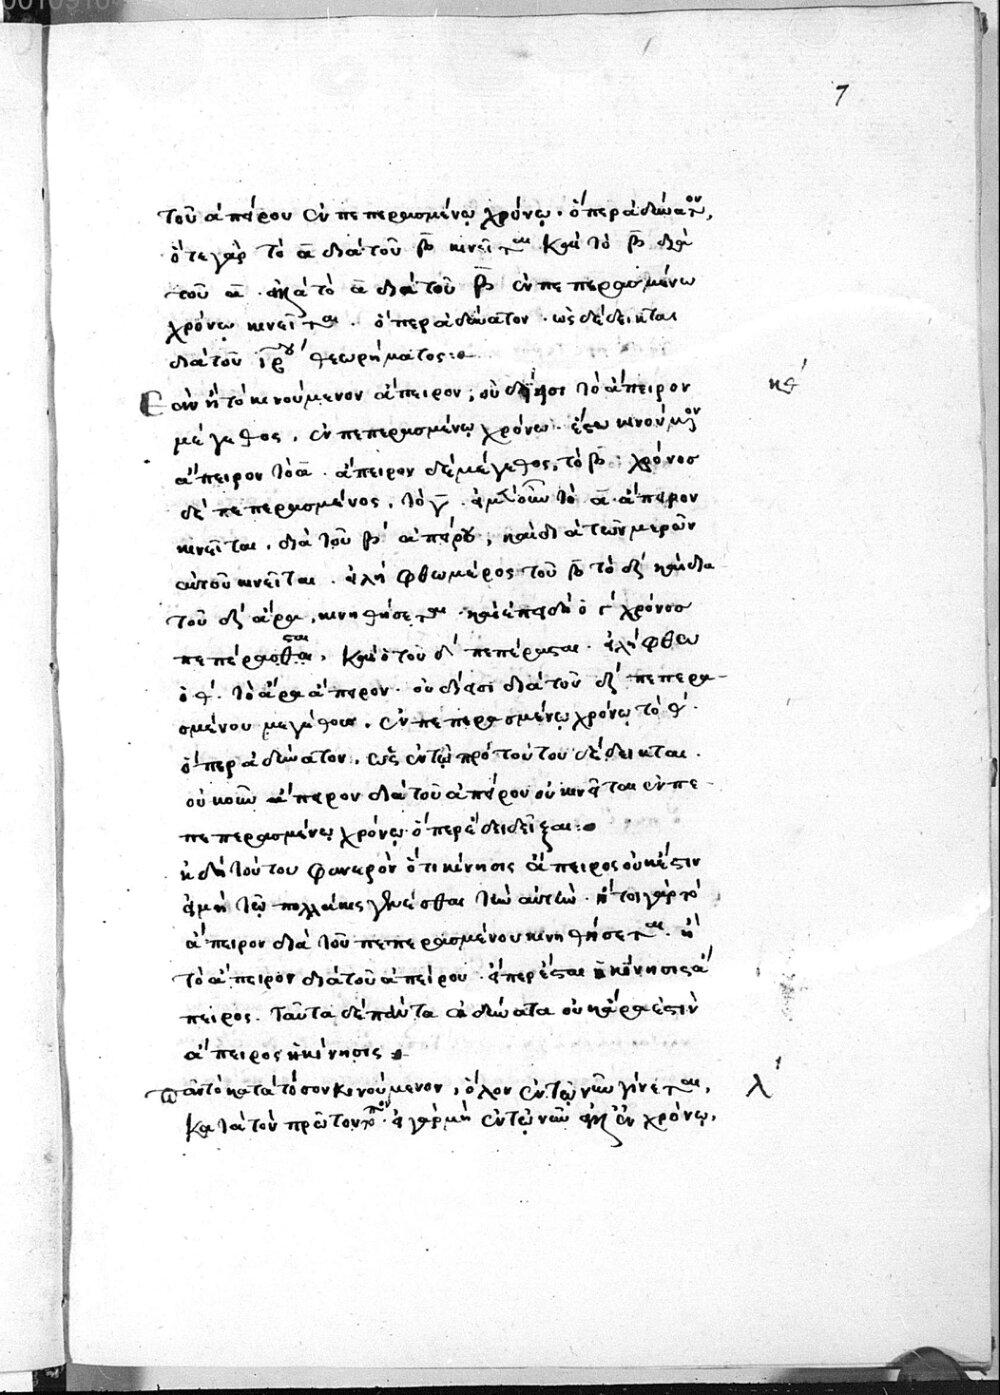 7
τοῦ ἀπείρου ἐν πεπερασμένῳ χρόνῳ· ὅπερ ἀδύνατον,
ὅτε γὰρ τὸ α̅ διὰ τοῦ β̅ κινεῖται καὶ τὸ β̅ διὰ
τοῦ α̅· ἀλλὰ τὸ α̅ διὰ τοῦ β̅ ἐν πεπερασμένω
χρόνω κινεῖται· ὅπερ ἀδύνατον· ὡς δέδεικται
διὰ τοῦ θεωρήματος:
Ἐὰν ᾖ τὸ κινούμενον ἄπειρον, οὐ δίεισι τὸ ἄπειρον
μέγεθος, ἐν πεπερασμένῳ χρόνω· ἔστω κινούμενον
ἄπειρον τὸ α̅· ἄπειρον δὲ μέγεθος, τὸ β̅· χρόνος
δὲ πεπερασμένος, τὸ γ̅· ἐπεὶ οὖν τὸ α̅ ἄπειρον
κινεῖται, διὰ τοῦ β ἀπείρου, καὶ διὰ τῶν μερῶν
αὐτοῦ κινεῖται· εἰλήφθω μέρος τοῦ β̅ τὸ δζ καὶ διὰ
τοῦ δζ ἄρα, κινηθήσεται· καὶ ἐπειδὴ ὁ γ χρόνος
πεπέρασται, καὶ ὁ τοῦ δζ πεπέρασται· εἰλήφθω
ὁ θ· τὸ ἄρα ἄπειρον· οὐ δίεισι διὰ τοῦ δζ πεπερα-
σμένου μεγέθους, ἐν πεπερασμένῳ χρόνῳ τὸ θ·
ὅπερ ἀδύνατον, ὡς ἐν τῷ πρὸ τούτου δέδεικται·
οὐκοῦν ἄπειρον διὰ τοῦ ἀπείρου οὐ κινεῖται ἐν πε-
πεπερασμένῳ χρόνῳ· ὅπερ ἔδει δεῖξαι:
ἐκ δὴ τούτου φανερὸν ὅτι κίνησις ἄπειρος οὐκ ἔστιν
εἰ μὴ τῷ πολλάκις γίνεσθαι τὴν αὐτὴν· ἤτοι γὰρ τὸ
ἄπειρον διὰ τοῦ πεπερασμένου κινηθήσεται· ἢ
τὸ ἄπειρον διὰ τοῦ ἀπείρου· εἴπερ ἔσται ἡ κίνησις ἄ
πειρος· ταῦτα δὲ πάντα ἀδύνατα οὐκ ἄρα ἔστιν
ἄπειρος ἡ κίνησις
πᾶν τὸ κατὰ τόπον κινούμενον, ὅλον ἐν τῷ νῦν γίνεται,
κατὰ τὸν πρῶτον τόπον· εἰ γὰρ μὴ ἐν τῷ νῦν ἀλλ' ἐν χρόνῳ,
κθ
λ